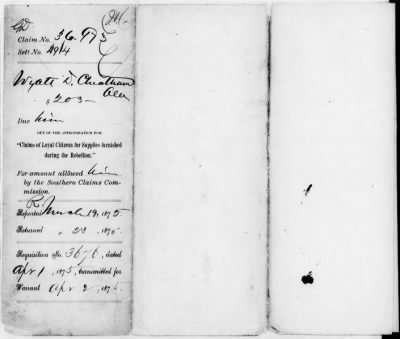 Claim No. 36.973
Sett No. 4914
Wyatt D. Cheatham
$203–
Due him
OUT OF THE APPROPRIATION FOR
"Claims of Loyal Citizens for Supplies furnished
during the Rebellion."
For amount allowed him
by the Southern Claims Com-
mission.
Reported March 19, 1875
Returned " 23, 1875.
Requisition No. 3676, dated
Apr 1, 1875, transmitted for
Warrant Apr 2, 1875.